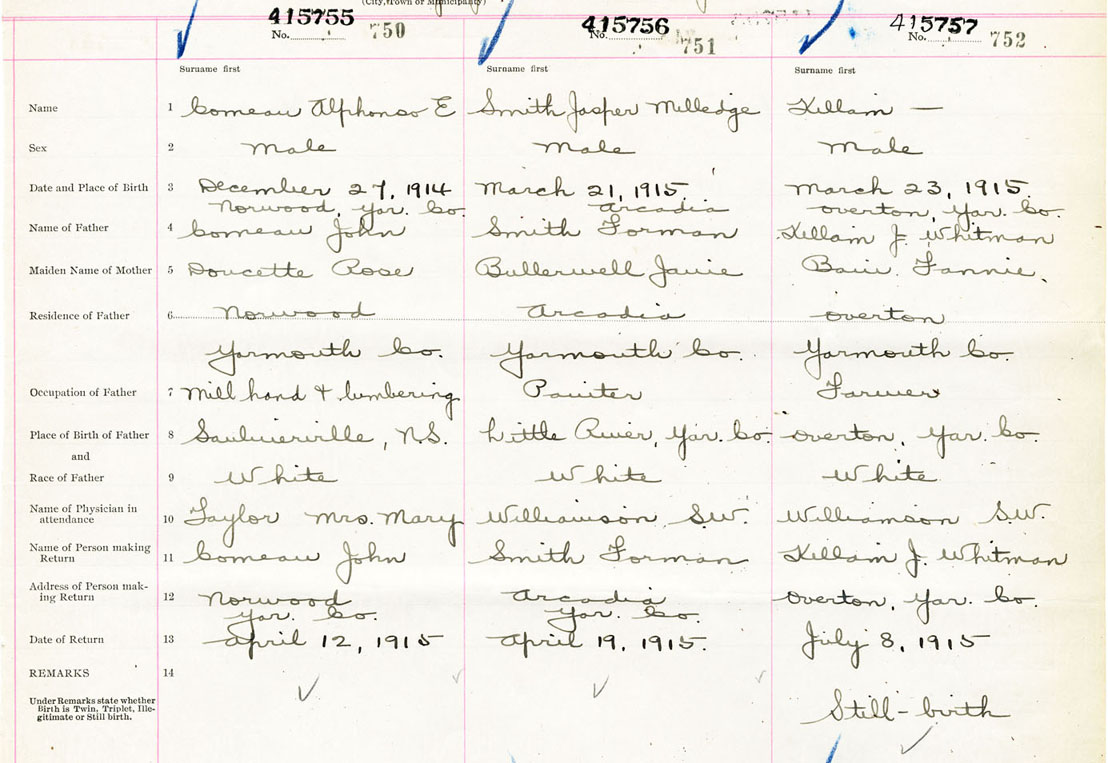 (City, Town or Municipality)
415755 415756 415757
No. 750 No. 751 No. 752
Surname first Surname first Surname first
Name 1 Comeau Alphonso E Smith Jasper Milledge Killam —
Sex 2 Male Male Male
Date and Place of Birth 3 December 27, 1914 March 21, 1915. March 23, 1915.
Norwood, Yar. Co. Arcadia Overton, Yar. Co.
Name of Father 4 Comeau John Smith Forman Killam J. Whitman
Maiden Name of Mother 5 Doucette Rose Bullerwell Janie Bain. Fannie.
Residence of Father 6 Norwood Arcadia Overton
Yarmouth Co. Yarmouth Co. Yarmouth Co.
Occupation of Father 7 Mill hand & lumbering Painter Farmer
Place of Birth of Father 8 Saulnierville, N.S. Little River, Yar. Co. Overton, Yar. Co.
and
Race of Father 9 White White White
Name of Physician in
attendance 10 Taylor Mrs. Mary Williamson S.W. Williamson S.W.
Name of Person making
Return 11 Comeau John Smith Forman Killam J. Whitman
Address of Person mak-
ing Return 12 Norwood Arcadia Overton, Yar. Co.
Yar. Co. Yar. Co.
Date of Return 13 April 12, 1915 April 19, 1915. July 8, 1915
REMARKS 14
Under Remarks state whether
Birth is Twin, Triplet, Ille-
gitimate or Still birth.
Still-birth